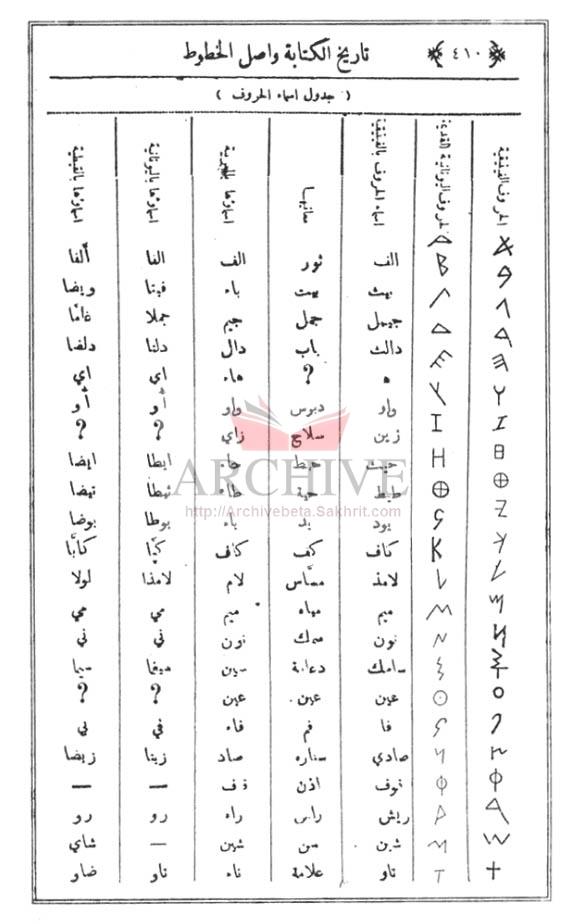 ﴿ ٤١٠ ﴾ تاريخ الكتابة واصل الخطوط
( جدول اسماء الحروف )
الحروف الفينيقية الحروف اليونانية القديمة اسماء الحروف بالفينيقية معانيها اسماؤها اسماؤها باليونانية اسماؤها بالقبطية
الف ثور الف الفا ألفا
بيث بيت باء فيتا ويضا
جيمل جمل جيم جملا غامّا
دالث باب دال دلتا دلضا
ه ? هاء اي اي
واو دبوس واو أو أو
زين سلاح زاي ? ?
حيث حيط حاء ايطا ايضا
طيط حية طاء ثيطا ثيضا
يود يد ياء يوطا يوضا
كاف كف كاف كبّا كابّا
لامذ مسّاس لام لامذا لولا
ميم مياه ميم مي مي
نون سمك نون ني ني
سامك دعامة سين سيغما سيما
عين عين عين ? ?
فا فم فاء في بي
صادي سناره صاد زيتا زيضا
قوف اذن قف — —
ريش راس راء رو رو
شين سن شين — شاي
تاو علامة تاء تاو ضاو
ARCHIVE
http://Archivebeta.Sakhrit.com